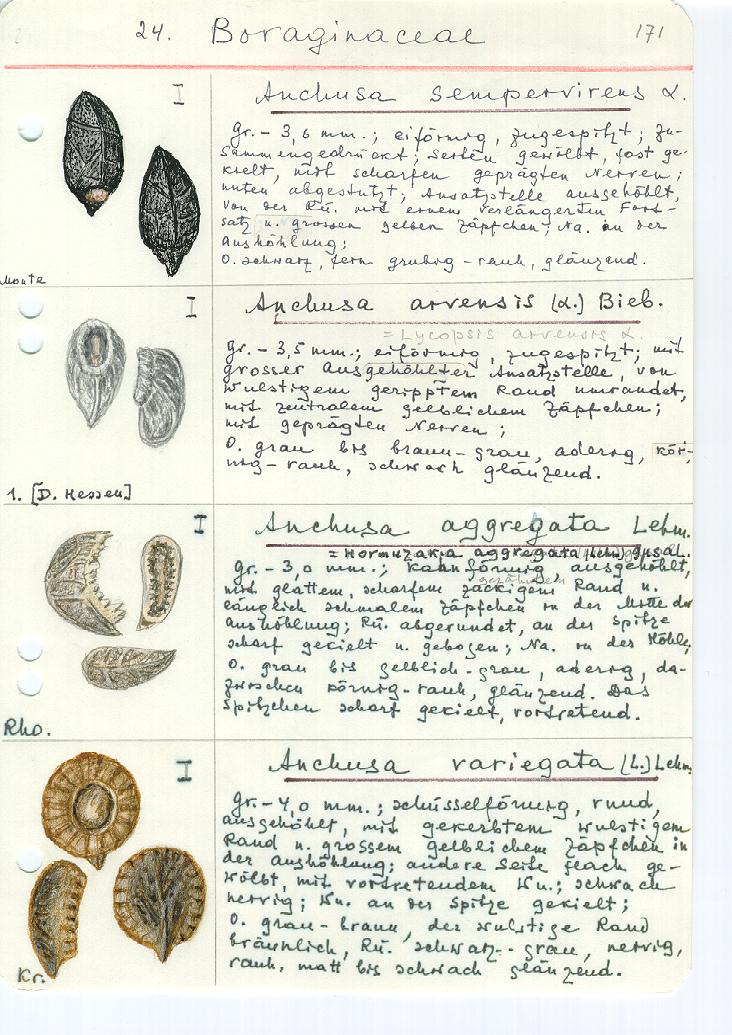 24. Boraginaceae 171
I
Anchusa sempervirens L.
Gr. - 3,6 mm.; eiförmig, zugespitzt; zu-
sammengedrückt; Seiten gewölbt, fast ge-
kielt, mit scharfen geprägten Nerven;
unten abgestutzt; Ansatzstelle ausgehöhlt,
von der Rü. mit einem verlängerten Fort-
satz u. grossen gelben Zäpfchen; Na. in der
Aushöhlung;
O. schwarz, fein grubig-rauh, glänzend.
Monte
I
Anchusa arvensis (L.) Bieb.
= Lycopsis arvensis L.
Gr. - 3,5 mm.; eiförmig, zugespitzt; mit
grosser ausgehöhlter Ansatzstelle, von
wulstigem geripptem Rand umrandet,
mit zentralem gelblichem Zäpfchen;
mit geprägten Nerven;
O. grau bis braun-grau, aderig, kör-
nig-rauh, schwach glänzend.
1. [D. Hessen]
I
Anchusa aggregata Lehm.
= Hormuzakia aggregata (Lehm) Gusul.
Gr. - 3,0 mm.; kahnförmig ausgehöhlt,
gezähntem
mit glattem, scharfem zackigem Rand u.
länglich schmalem Zäpfchen in der Mitte der
Aushöhlung; Rü. abgerundet, an der Spitze
scharf gekielt u. gebogen; Na. in der Höhle;
O. grau bis gelblich-grau, aderig, da-
zwischen körnig-rauh, glänzend. Das
Spitzchen scharf gekielt, vortretend.
Rho.
I
Anchusa variegata (L.) Lehm.
Gr. - 4,0 mm.; schüsselförmig, rund,
ausgehöhlt, mit gekerbtem wulstigem
Rand u. grossem gelblichem Zäpfchen in
der Aushöhlung; andere Seite flach ge-
wölbt, mit vortretendem Wu.; schwach
nervig; Wu. an der Spitze gekielt;
O. grau-braun, der wulstige Rand
bräunlich, Rü. schwarz-grau, nervig,
rauh, matt bis schwach glänzend.
Kr.